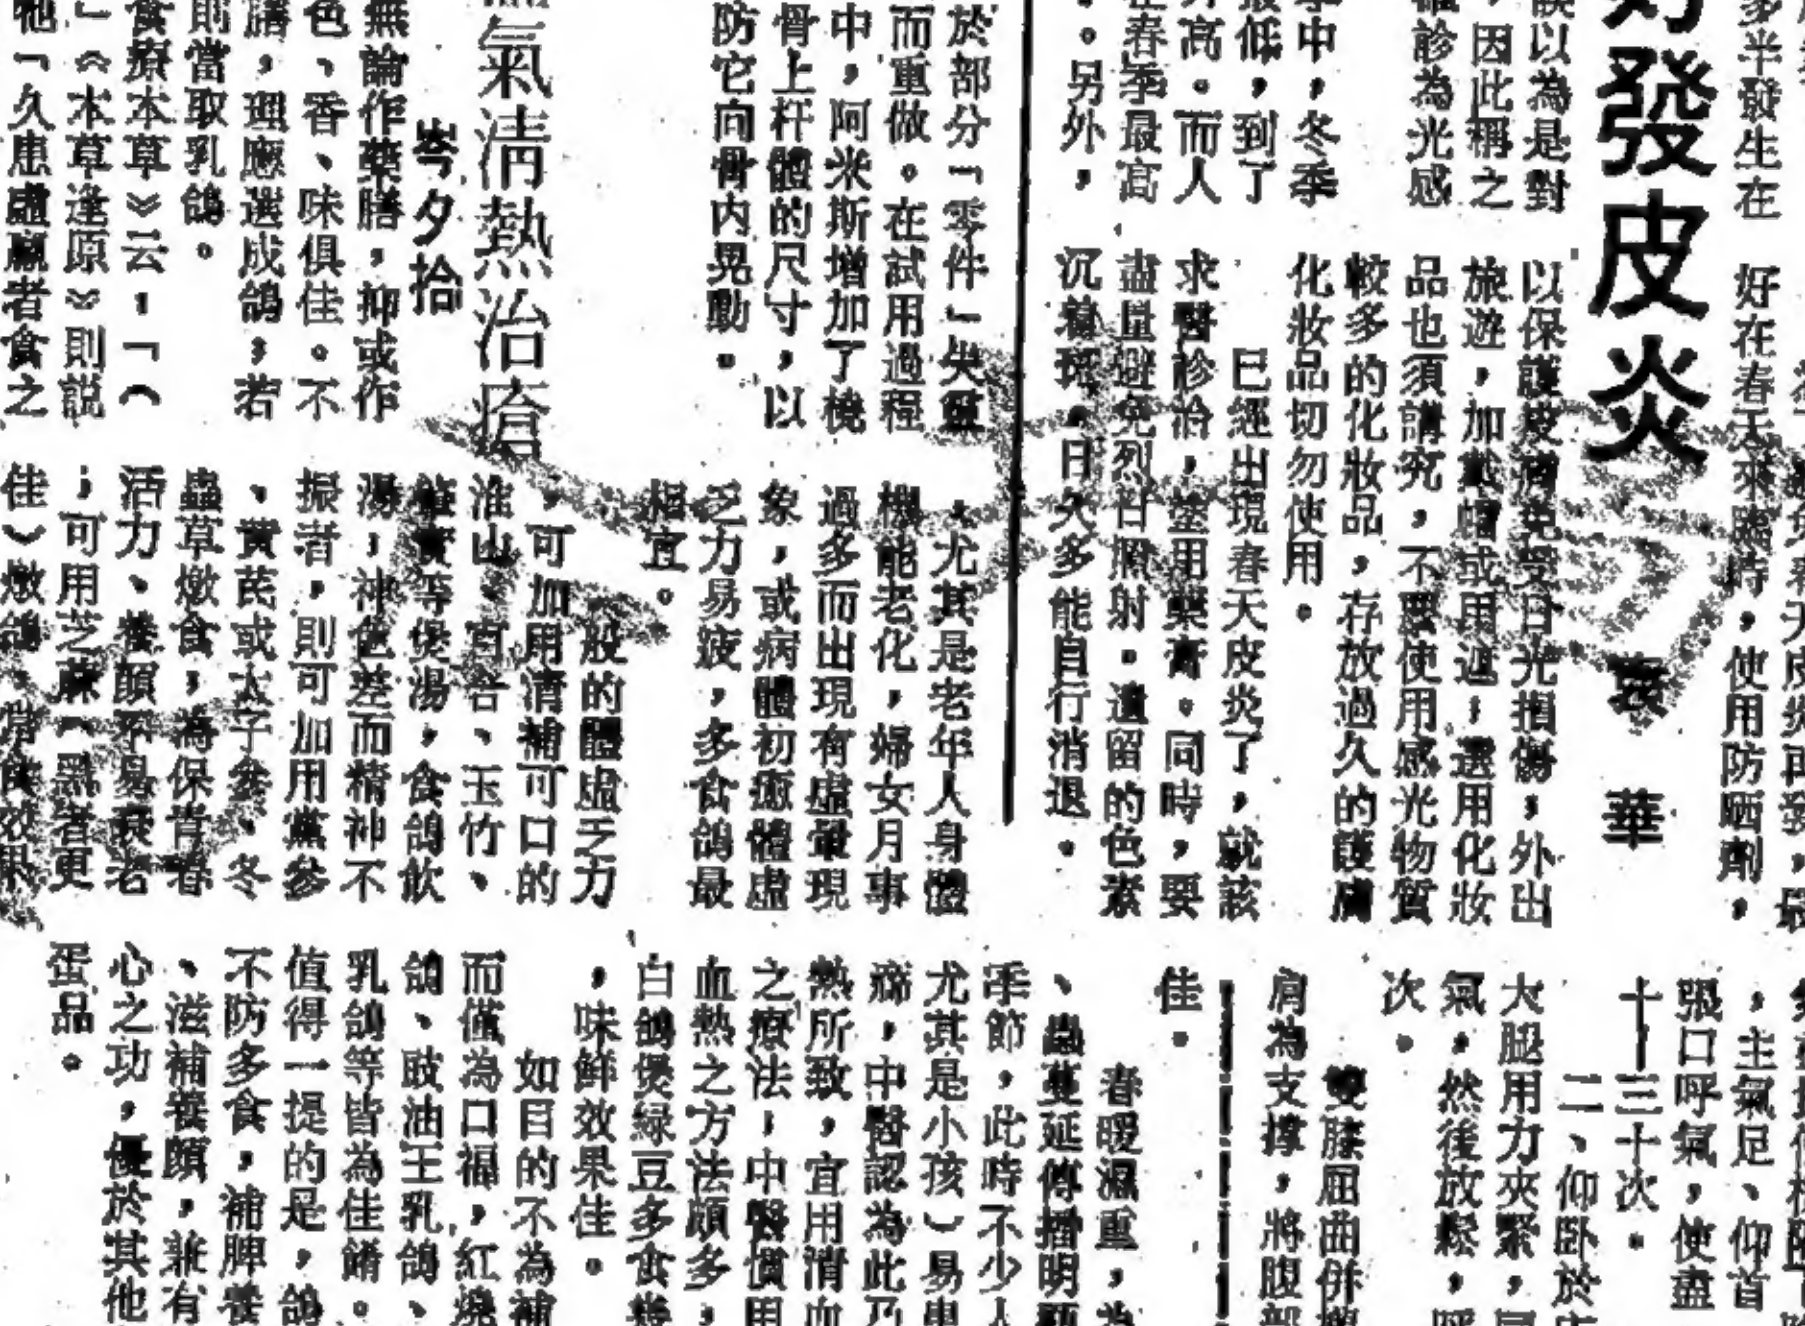 多半發生在
發皮炎
華
誤以為是對
，因此稱之
確診為光感
季中，冬季
最低，到了
升高。而人
在春季最高
。另外，
好在春天來臨時，使用防晒劑，
以保護皮膚免受日光損傷；外出
旅遊，加戴帽或用遮；選用化妝
品也須講究，不要使用感光物質
較多的化妝品，存放過久的護膚
化妝品切勿使用。
已經出現春天皮炎了，就該
求醫診治，塗用藥膏。同時，要
盡量避免烈日照射。遺留的色素
沉着斑，日久多能自行消退。
，主氣足、仰首
張口呼氣，使盡
十—三十次。
二、仰卧於
大腿用力夾緊，
氣，然後放鬆，呼
次。
雙膝屈曲併攏
肩為支撐，將腹部
佳。
於部分「零件」失靈
而重做。在試用過程
中，阿米斯增加了橈
骨上杆體的尺寸，以
防它向骨內晃動。
氣清熱治瘡
岑夕拾
無論作藥膳，抑或作
色、香、味俱佳。不
膳，理應選成鴿；若
則當取乳鴿。
食療本草》云：「（
」《本草逢原》則説
他「久患虛羸者食之
，尤其是老年人身體
機能老化，婦女月事
過多而出現有虛暈現
象，或病體初癒體虛
乏力易疲，多食鴿最
相宜。
一般的體虛乏力
，可加用清補可口的
淮山、百合、玉竹、
蓮實等煲湯，食鴿飲
湯；神色差而精神不
振者，則可加用黨參
、黃芪或太子參、冬
蟲草燉食，為保青春
活力、養顏不易衰老
；可用芝蔴（黑者更
佳）燉鴿，常食效果
春暖濕重，為
、蟲蔓延傳播明顯
季節，此時不少人
尤其是小孩）易患
瘍，中醫認為此乃
熱所致，宜用清血
之療法，中醫慣用
血熱之方法頗多，
白鴿煲綠豆多食幾
，味鮮效果佳。
如目的不為補
而僅為口福，紅燒
鴿、豉油王乳鴿、
乳鴿等皆為佳餚。
值得一提的是，鴿
不防多食，補脾養
、滋補養顏，兼有
心之功，優於其他
蛋品。